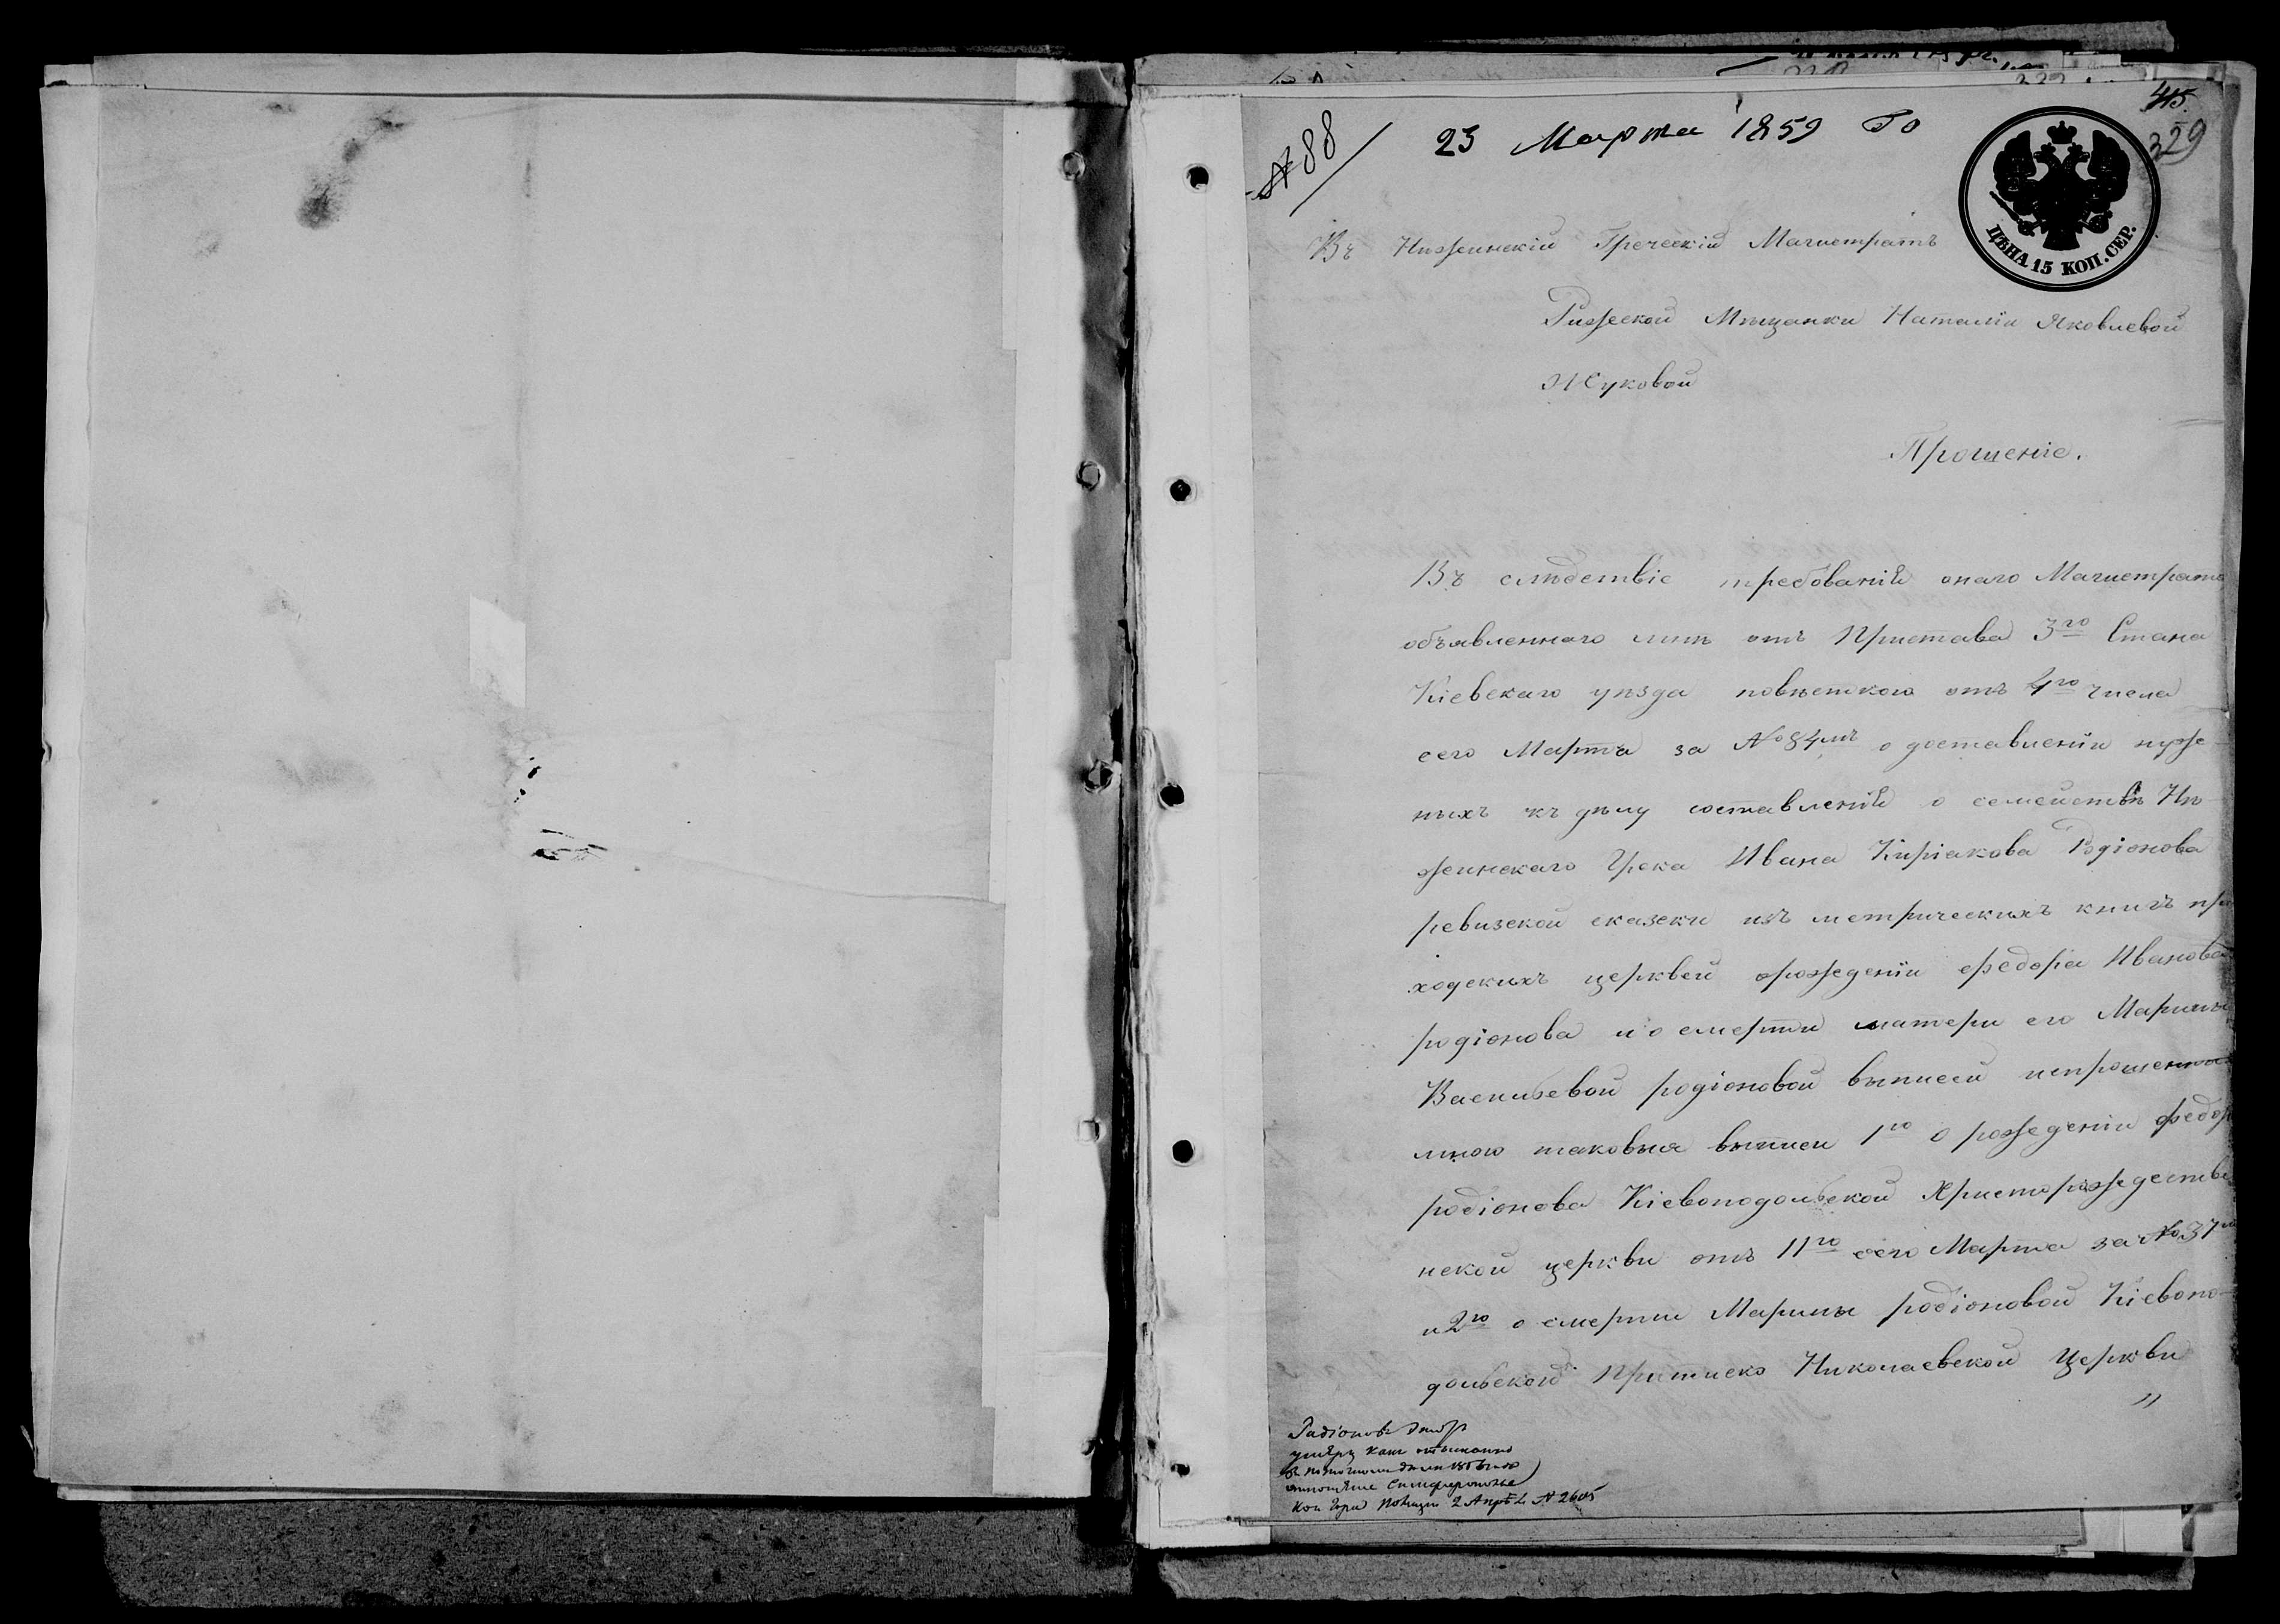 415
329
№ 88
23 Марта 1859 Го
ЦѢНА 15 КОП. СЕР.
Въ Нѣжинскій Греческій Магистратъ
Рижской Мѣщанки Наталіи Яковлевой
Жуковой
Прошеніе.
Въ слѣдствіе требованій онаго Магистрата
объявленнаго мнѣ отъ Пристава 3го Стана
Кіевскаго уѣзда повѣсткою отъ 4го числа
сего Марта за № 84мъ о доставленіи нуж-
ныхъ къ дѣлу составленій о семействѣ Нѣ-
жинскаго Грека Ивана Киріакова Родіонова
ревизской сказски изъ метрическихъ книгъ при
ходскихъ церквей орожденіи Федора Иванова
родіонова и о смерти матери его Марины
Васильевой родіоновой выписей испрошенное
мною таковыя выписи 1го о рожденіи Федора
родіонова Кіевоподольской Христорождестве
нской церкви отъ 11го сего Марта за № 37
и 2го о смерти Марины родіоновой Кіевопо-
дольской Притиско Николаевской Церкви
Радіоновъ
умеръ какъ
отношеніе Симферополь
кой Гори Полиціи 2 Апрѣл № 2605